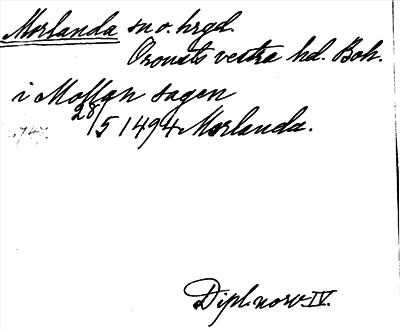 Morlanda sn o. hrgd.
Orousts vestra hd. Boh.
i Mollan sogen
28/5 1494 Morlanda.
Dipl. norv IV.